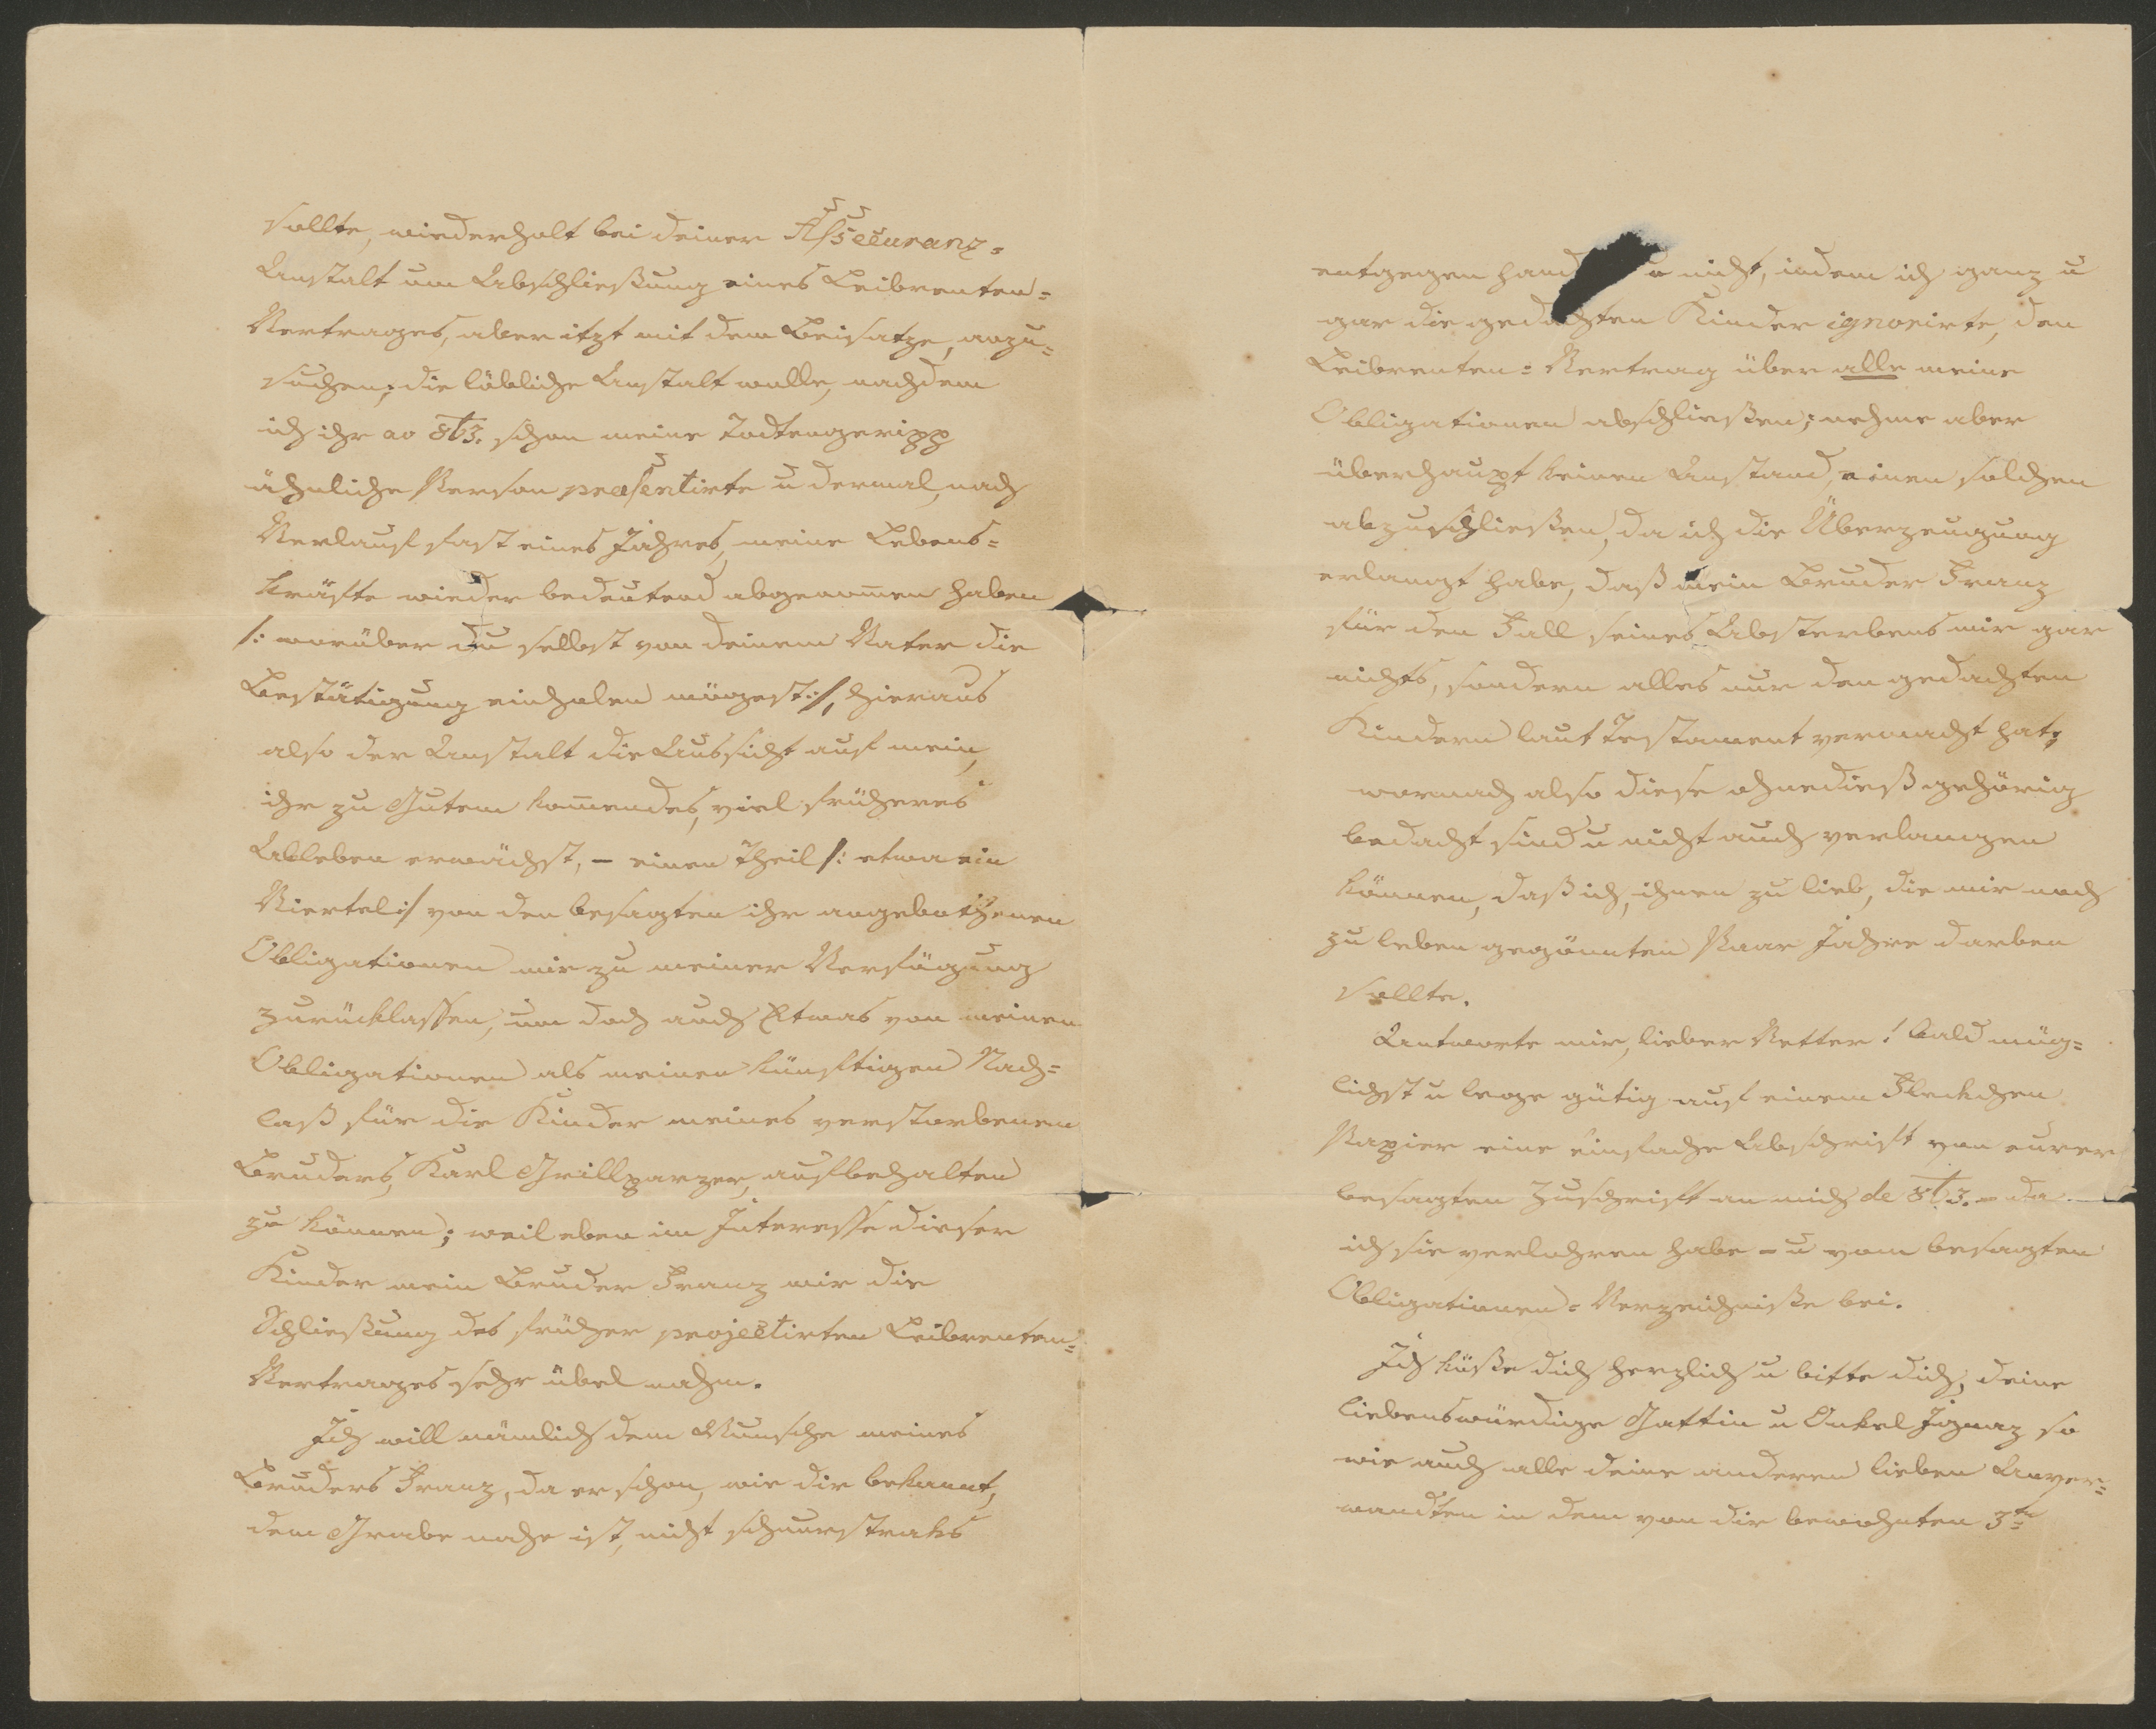 sollte, wiederholt bei deiner Assecuranz=
Anstalt um Abschließung eines Leibrenten=
Vertrages, aber itzt mit dem Beisatze, anzu=
suchen; die löbliche Anstalt wolle, nachdem
ich ihr ao 863. schon meine Todtengeripp
ähnliche Person praesentirte u dermal, nach
Verlauf fast eines Jahres, meine Lebens=
kräfte wieder bedeutend abgenommen haben
/: worüber du selbst von deinem Vater die
Bestätigung einholen mögest :/, hieraus
also der Anstalt die Aussicht auf mein,
ihr zu Gutem kommendes, viel früheres
Ableben erwächst, – einen Theil /: etwa ein
Viertel :/ von den besagten ihr angebothenen
Obligationen mir zu meiner Verfügung
zurücklassen, um doch auch Etwas von meinen
Obligationen als meinen künftigen Nach=
laß für die Kinder meines verstorbenen
Bruders, Karl Grillparzer, aufbehalten
zu können; weil eben im Interesse dieser
Kinder mein Bruder Franz mir die
Schließung des früher projectirten Leibrenten=
Vertrages sehr übel nahm.
Ich will nämlich dem Wunsche meines
Bruders Franz, da er schon, wie dir bekannt,
dem Grabe nahe ist, nicht schnurstraks
entgegen hand nicht, indem ich ganz u
gar die gedachten Kinder ignorirte, den
Leibrenten= Vertrag über alle meine
Obligationen abschließen; nehme aber
überhaupt keinen Anstand, einen solchen
abzuschließen, da ich die Überzeugung
erlangt habe, daß mein Bruder Franz
für den Fall seines Absterbens mir gar
nichts, sondern alles nur den gedachten
Kindern laut Testament vermacht hat;
wornach also diese ohnedieß gehörig
bedacht sind u nicht auch verlangen
können, daß ich, ihnen zu lieb, die mir noch
zu leben gegönnten Paar Jahre darben
sollte.
Antworte mir, lieber Vetter! bald mög=
lichst u lege gütig auf einem Fleckchen
Papier eine einfache Abschrift von eurer
besagten Zuschrift an mich de 863. – da
ich sie verlohren habe – u vom besagten
Obligationen= Verzeichniße bei.
Ich küße dich herzlich u bitte dich, deine
liebenswürdige Gattin u Onkel Ignaz so
wie auch alle deine anderen lieben Anver=
wandten in dem von dir bewohnten 3tn